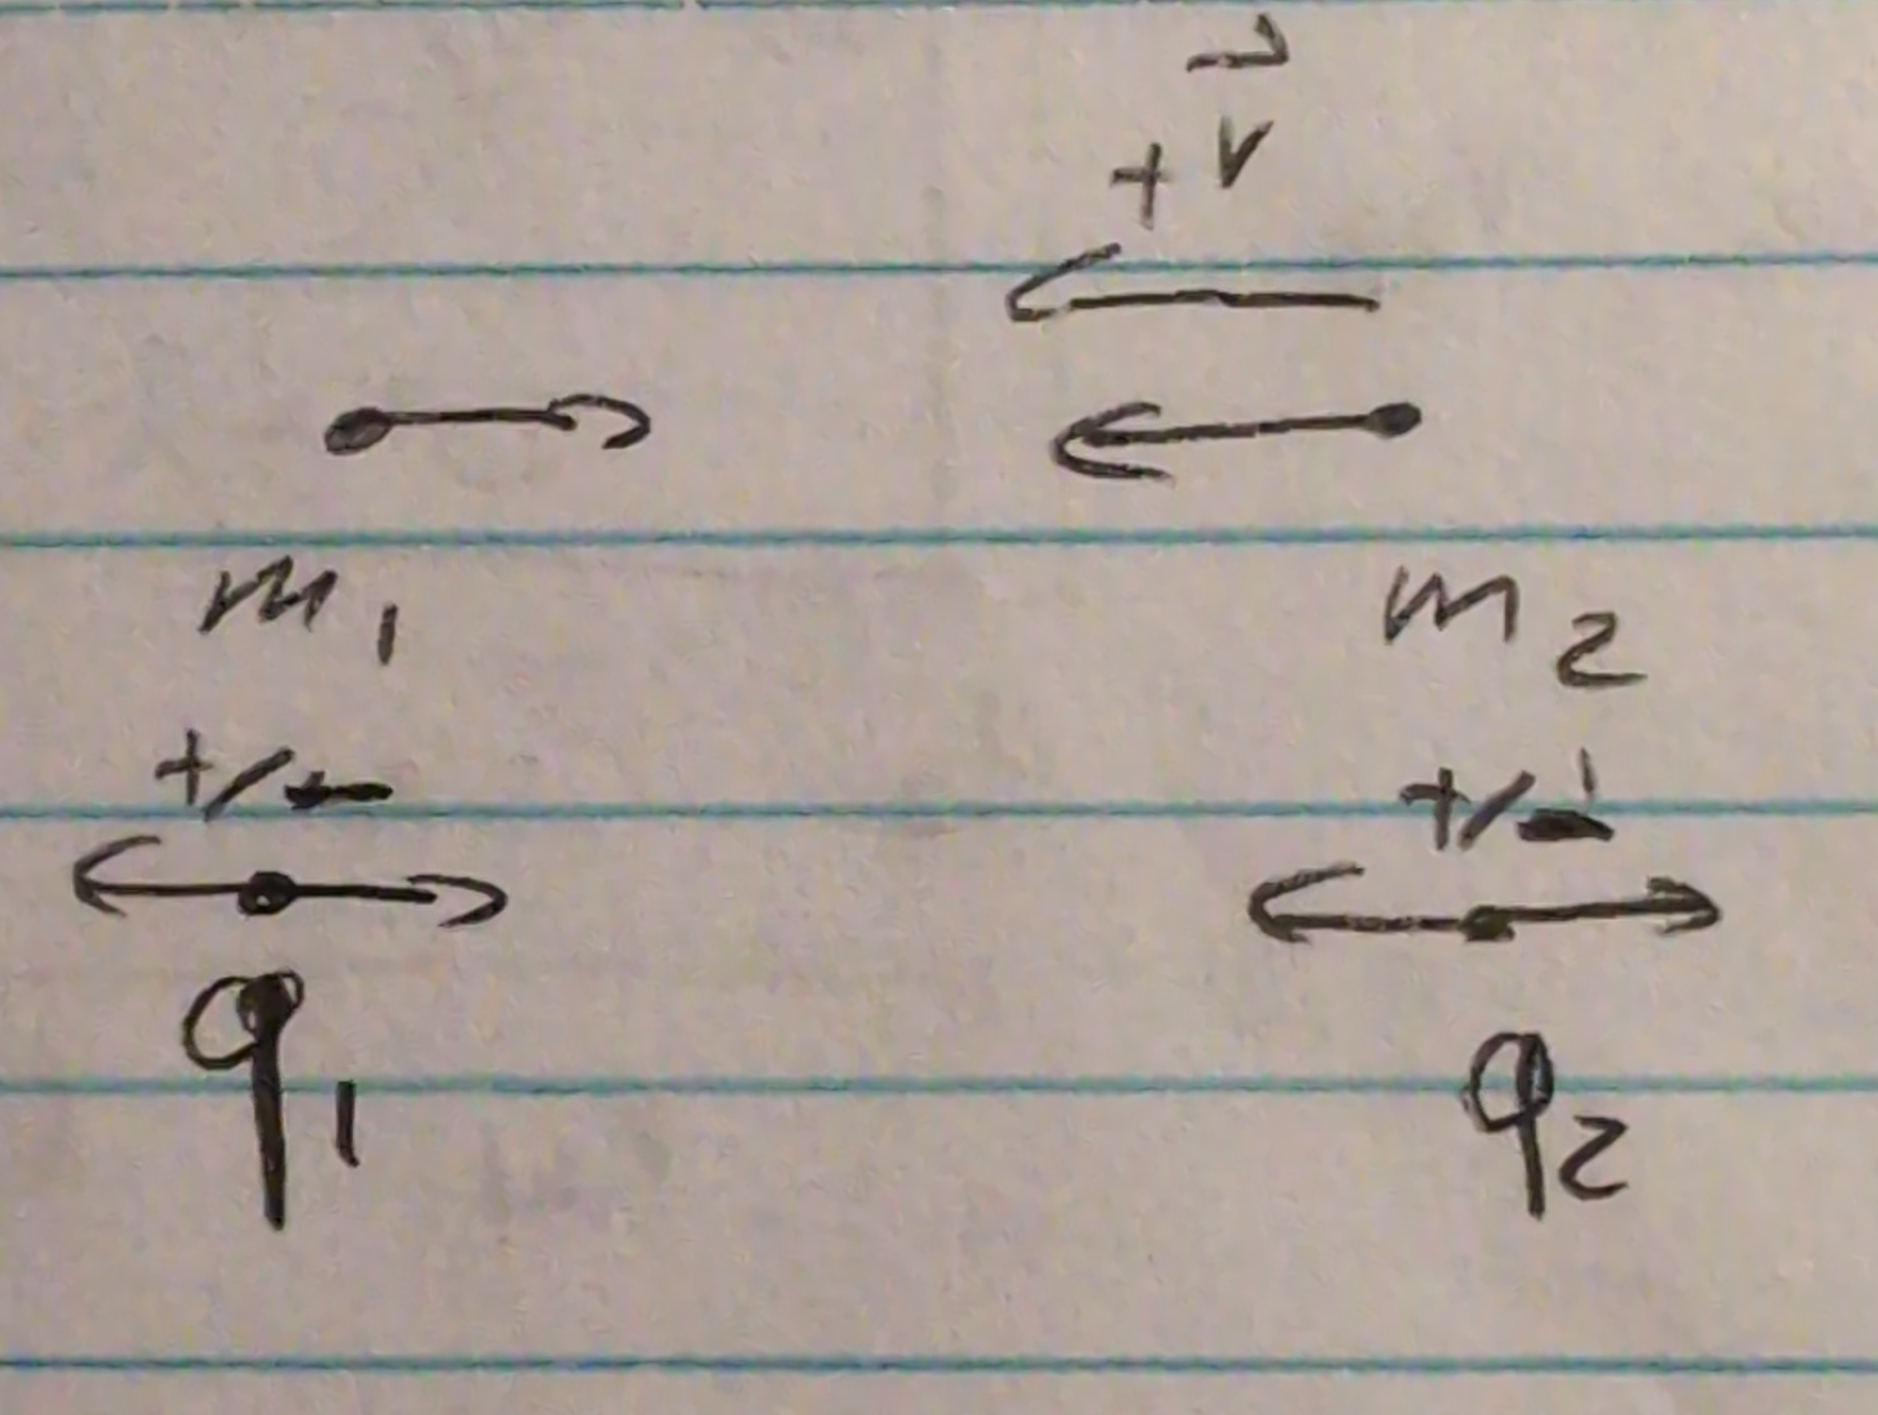 + v⃗
m₁ m₂
+/- +/-
q₁ q₂